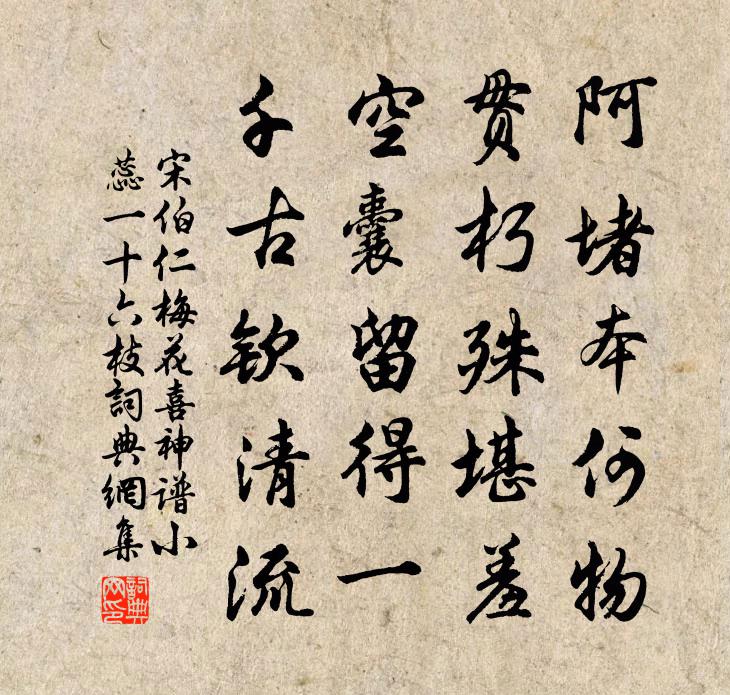 阿堵本何物
贯朽殊堪羞
空囊留得一
千古钦清流
宋伯仁梅花喜神谱小
蕊一十六枝詞典網集
詞典網印